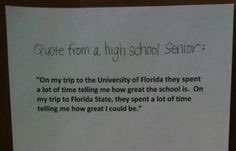 Quote from a high school senior:
"On my trip to the University of Florida they spent
a lot of time telling me how great the school is. On
my trip to Florida State, they spent a lot of time
telling me how great I could be."